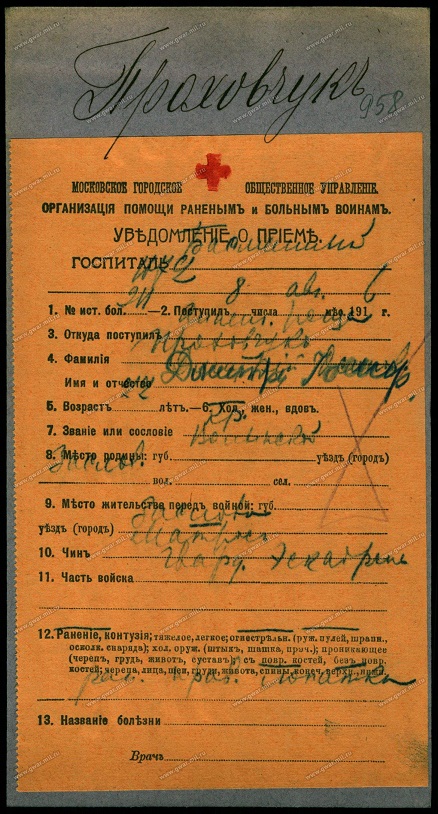 Проховчукъ
958
МОСКОВСКОЕ ГОРОДСКОЕ ОБЩЕСТВЕННОЕ УПРАВЛЕНІЕ.
ОРГАНИЗАЦІЯ ПОМОЩИ РАНЕНЫМЪ и БОЛЬНЫМЪ ВОИНАМЪ.
УВѢДОМЛЕНІЕ О ПРІЕМѢ.
ГОСПИТАЛЬ
1. № ист. бол. 2. Поступилъ 8 числа авг. 191 6 г.
3. Откуда поступилъ
4. Фамилія Проховчукъ
Имя и отчество Дмитрій
5. Возрастъ 22 лѣтъ.—6. Хол., жен., вдовъ.
7. Званіе или сословіе кр.
8. Мѣсто родины: губ. Волынской уѣздъ (городъ)
Заслав. вол. сел.
9. Мѣсто жительства передъ войной: губ.
уѣздъ (городъ)
10. Чинъ Матрос
11. Часть войска Гвард. Экипаж
12. Раненіе, контузія; тяжелое, легкое; огнестрѣльн. (руж. пулей, шрапн.,
оскол. снаряда); хол. оруж. (штыкъ, шашка, проч.); проникающее
(черепъ, грудь, животъ, суставъ); съ повр. костей, безъ повр.
костей; черепа, лица, шеи, груди, живота, спины, конеч. верхн. нижн.
ран. прав. лопатки
13. Названіе болѣзни
Врачъ
www.gwar.mil.ru